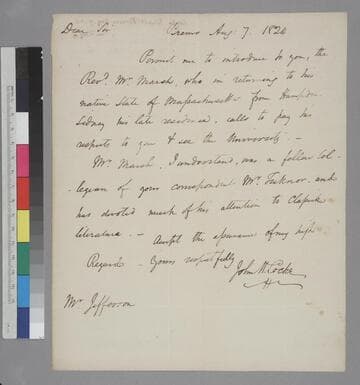 Dear Sir, Bremo Aug. 7. 1824
Permit me to introduce to you, the
Revd. Mr. Marsh, who in returning to his
native State of Massachusetts from Hampden
Sidney his late residence, calls to pay his
respects to you & see the University. —
Mr. Marsh, I understand, was a fellow Col-
-legian of your correspondent Mr. Ticknor, and
has devoted much of his attention to Classical
literature. — Accept the assurance of my high
Regards — Yours respectfully
John H. Cocke
Mr. Jefferson